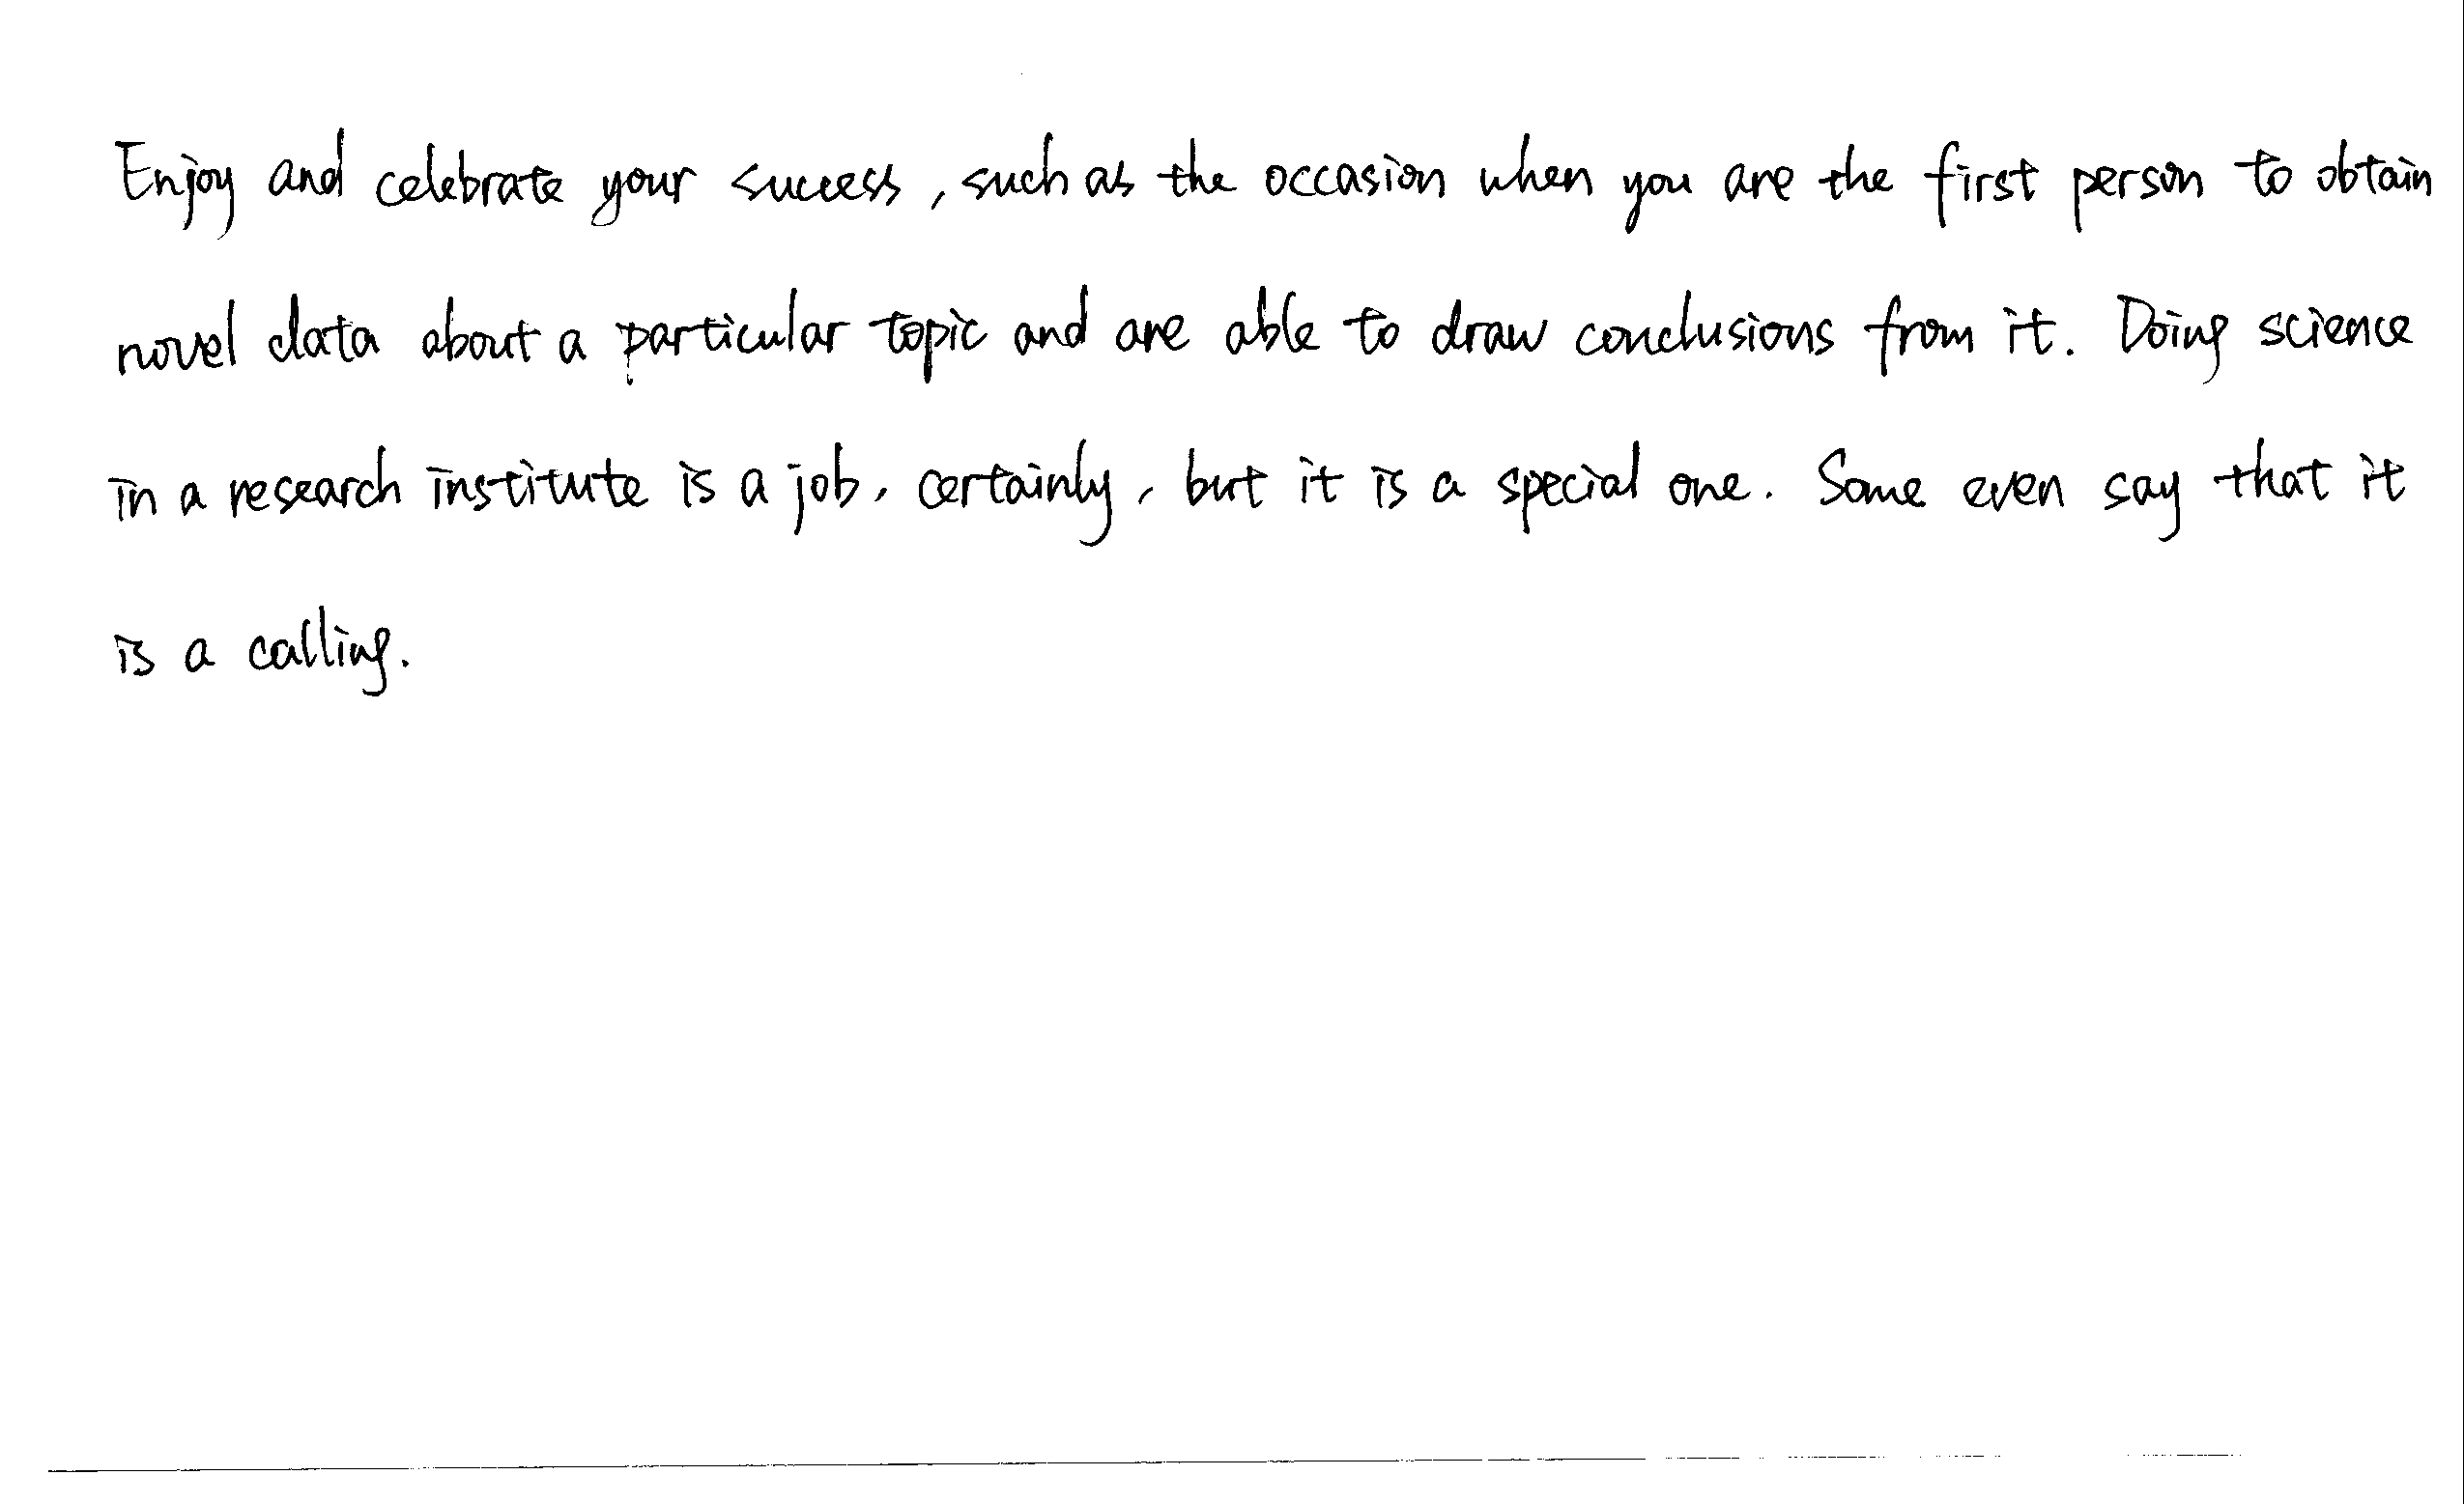 Enjoy and celebrate your success, such as the occasion when you are the first person to obtain
novel data about a particular topic and are able to draw conclusions from it. Doing science
in a research institute is a job, certainly, but it is a special one. Some even say that it
is a calling.